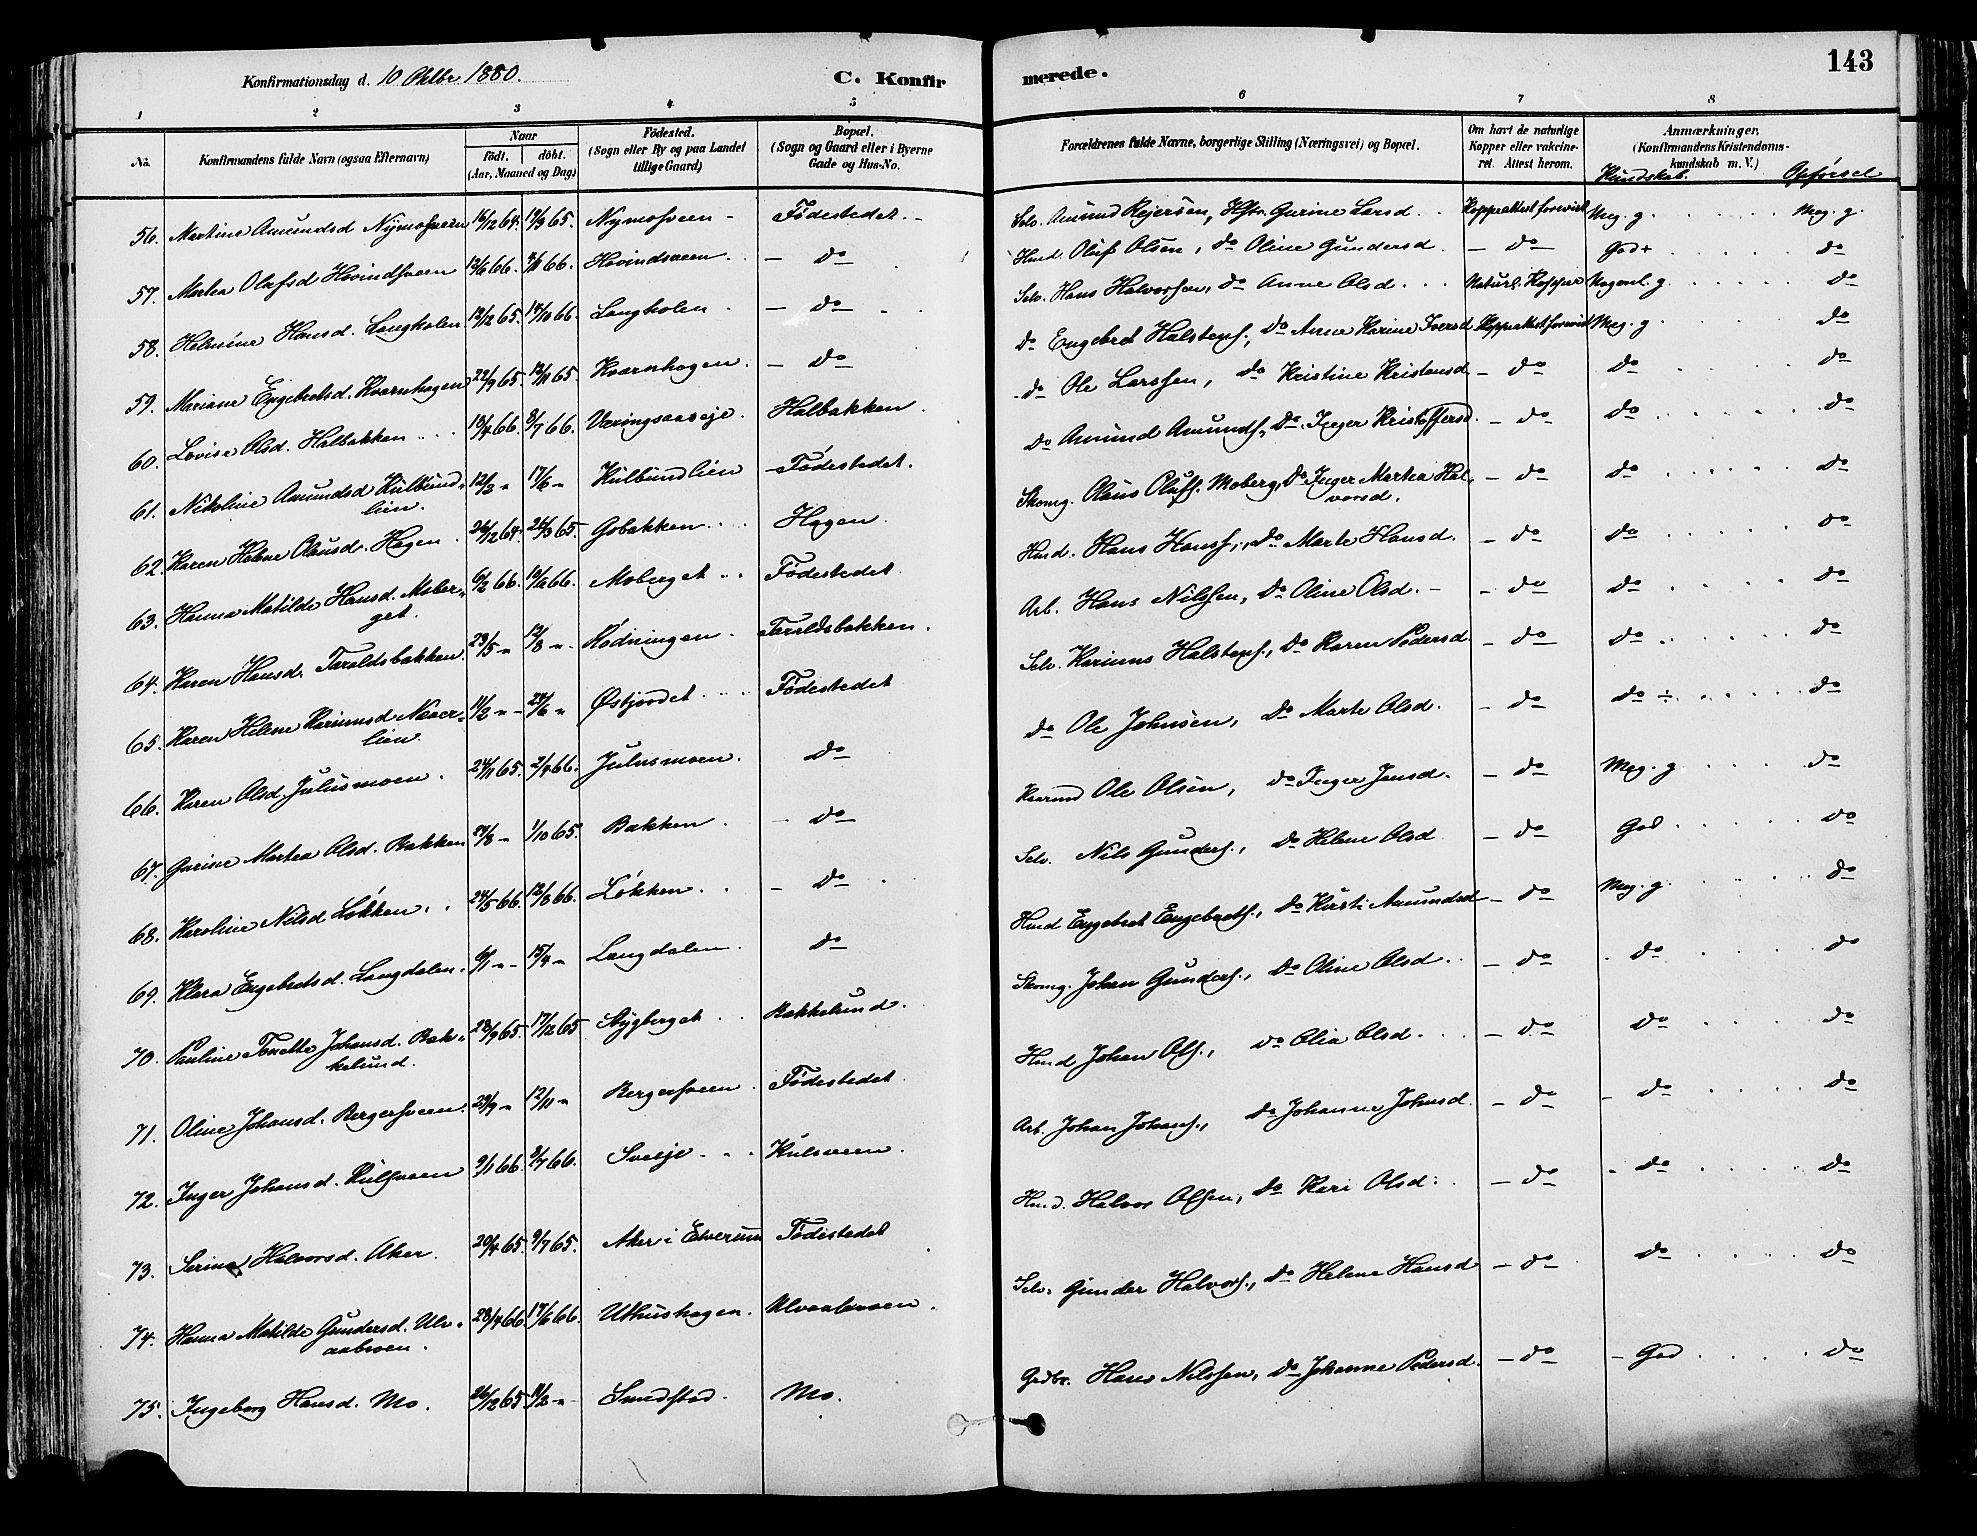 143
Konfirmationsdag d. 10 Oktbr 1880.
C. Konfir merede.
1 2 3 4 5 6 7 8
No.
Konfirmandens fulde Navn (ogsaa Efternavn)
Naar
födt. döbt.
(Aar, Maaned og Dag)
Födested.
(Sogn eller By og paa Landet
tillige Gaard)
Bopæl.
(Sogn og Gaard eller i Byerne
Gade og Hus-No.
Forældrenes fulde Navne, borgerlige Stilling (Næringsvei) og Bopæl.
Om havt de naturlige
Kopper eller vakcine-
ret. Attest herom.
Anmærkninger,
(Konfirmandens Kristendoms-
kundskab m. V.)
Kundskab. Opførsel
56. Martine Amundsd Nymosveen 16/12 64. 19/3 65. Nymosveen - Fødestedet. - Selv. Amund Rejersen, Hstr. Gurine Larsd. Koppeattest forevist Meg. g. Meg. g.
57. Martea Olufsd Hovindsveen 12/6 66. 4/11 66. Hovindsveen - do Husd. Oluf Olsen, do Oline Gundersd. - do - God+ do
58. Helmine Hansd. Langholen 12/12 65. 14/10 66. Langholen - do Selv. Hans Halvorsen, do Anne Olsd Naturl. Kopper Nogenl. g. do
59. Mariane Engebretsd. Kvarnhagen 22/9 65. 12/11 65. Kvarnhagen. - do do Engebret Halstens., do Anne Karine Iversd Koppeattest forevist Meg. g do
60. Lovise Olsd. Halbakken 18/4 66. 8/7 66. Væringsaaseje. Halbakken. do Ole Larssen, do Kristine Kristensd - do do do
61. Nikoline Amundsd Kulbund-
lien. 12/3 " 17/6 " Kulbundlien Fødestedet. do Amund Amunds., do Inger Kristoffersd. - do do do
62. Karen Helene Olausd. Hagen 26/12 64. 26/3 65. Gobakken Hagen. Skomg. Olaus Olufs. Moberg, do Inger Martea Hal-
vorsd. - do do do
63. Hanna Matilde Hansd. Mober-
get. 6/2 66. 10/5 66. Moberget Fødestedet. Husd. Hans Hanss., do Marte Hansd. - do do do
64. Karen Hansd. Taraldsbakken. 29/5 " 12/8 " Rødningen. Taraldsbakken. Arb. Hans Nilssen, do Oline Olsd. - - do do do
65. Karen Helene Kariusd Næver-
lien. 11/2 " 24/6 " Østjordet Fødestedet Selv. Karinus Halstens., do Karen Pedersd - do do do
66. Karen Olsd. Julusmoen. 24/11 65. 2/4 66. Julusmoen. do do Ole Johnsen, do Marte Olsd. - do do ÷ do
67. Gurine Martea Olsd. Bakken 27/8 - 1/10 65. Bakken. - do Ole Olsen, do Inger Jensd. - do Meg. g do
68. Karoline Nilsd Løkken. 24/5 66. 12/8 66. Løkken. - do Selv. Nils Gunders., do Helene Olsd - do God do
69. Klara Engebretsd. Langdalen. 6/1 " - 15/4 " Langdalen. do Husd Engebret Engebrets., do Kirsti Amundsd - do Meg. g do
70. Pauline Tonette Johansd. Bak-
kelund. 28/9 65. 17/12 65 Stygberget Bakkelund. Skomg. Johan Gunders., do Oline Olsd. - do do do
71. Oline Johansd. Bergersveen. 29/9 " 12/11 " Bergersveen. Fødestedet. Husd Johan Ols., do Olia Olsd. - do do do
72. Inger Johansd. Kulsveen 9/1 66. 8/7 66. Sveeje Kulsveen. Arb. Johan Johans., do Johanne Johnsd. - do - do do
73. Serina Halvorsd. Aker. 20/4 65. 9/7 65. Aker i Elverum Fødestedet Husd. Halvor Olsen, do Kari Olsd. - do do do
74. Hanna Matilde Gundersd. Ulv-
aabroen. 28/4 66 17/6 66. Uthushagen. Ulvaabroen. Selv. Gunder Halvors., do Helene Hansd - do do do
75. Ingeborg Hansd. Mo. 26/12 65 11/2 " Smedstad. Mo. Gadbr. Hans Nilssen, do Johanne Pedersd. - do - God do